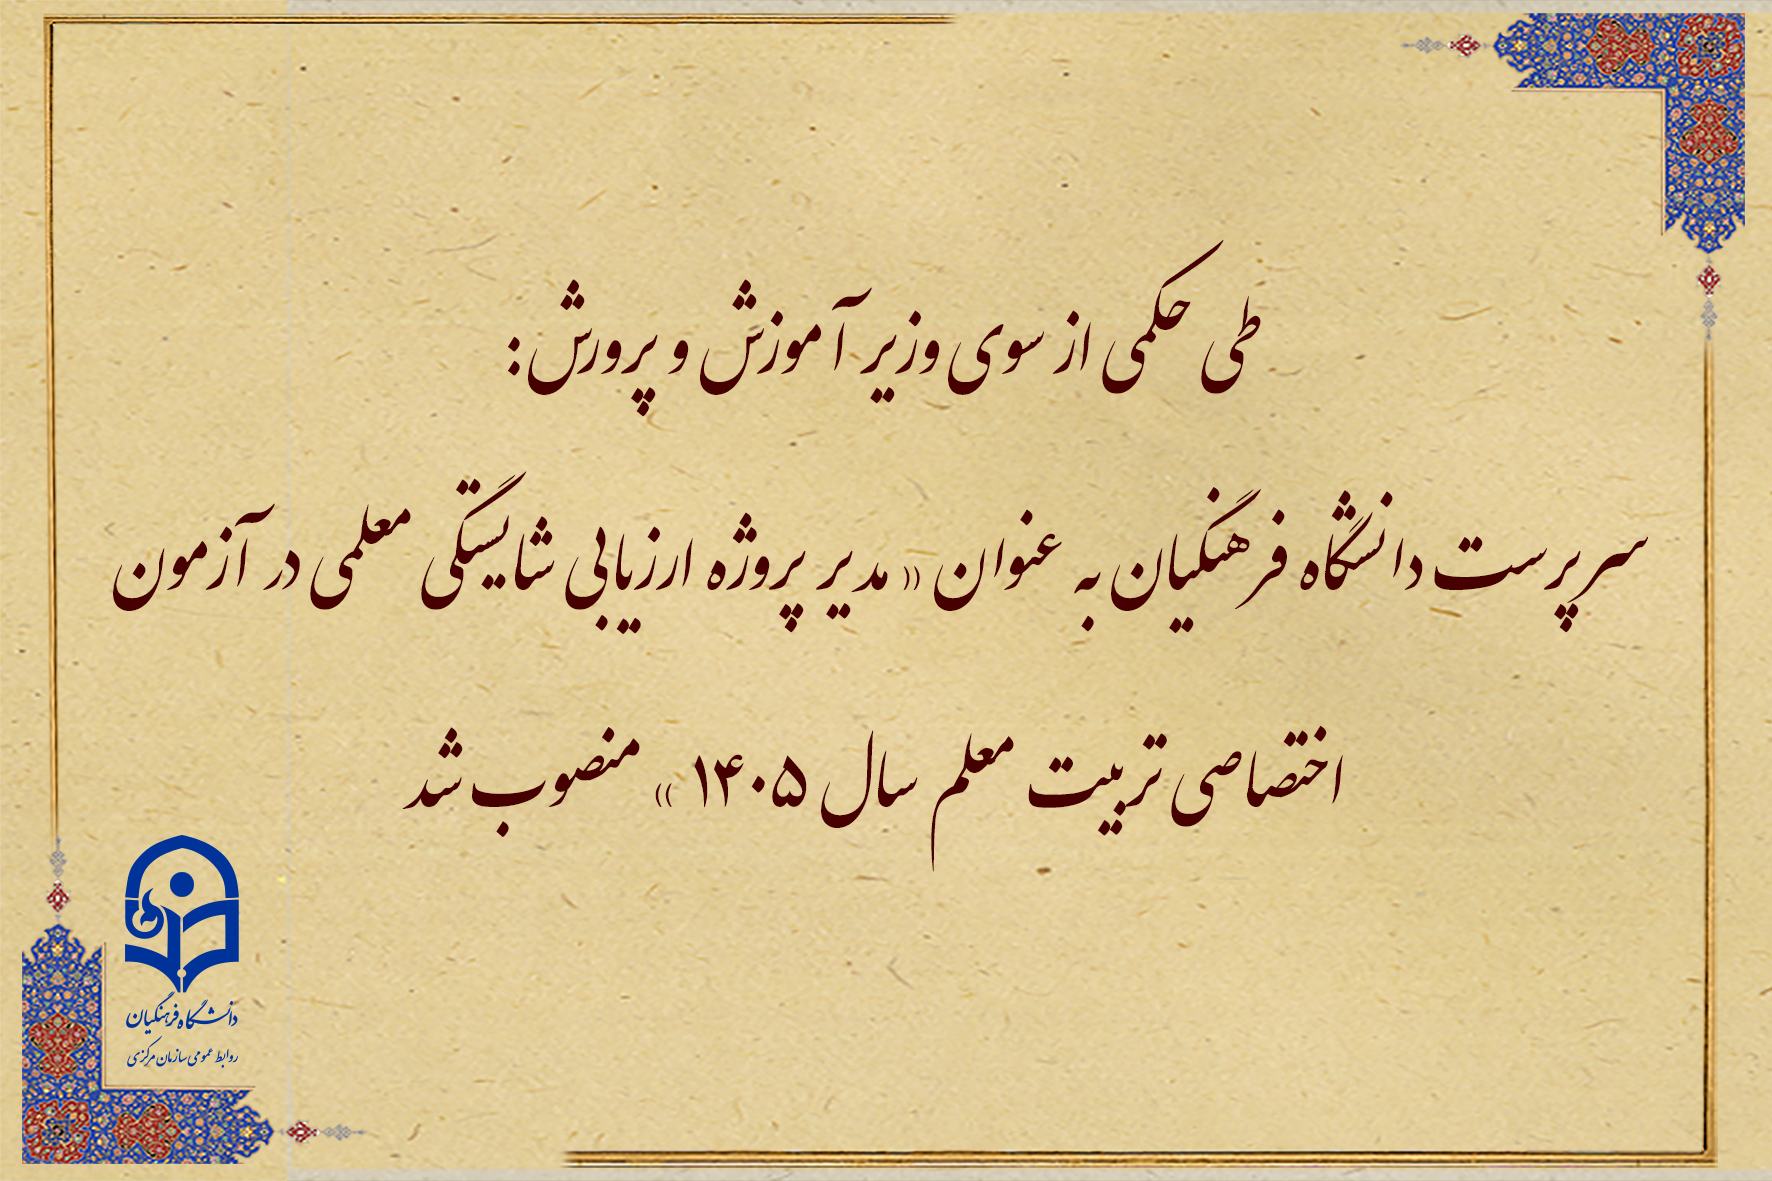 طی حکمی از سوی وزیر آموزش و پرورش:
سرپرست دانشگاه فرهنگیان به عنوان « مدیر پروژه ارزیابی شایستگی معلمی در آزمون
اختصاصی تربیت معلم سال ۱۴۰۵ » منصوب شد
دانشگاه فرهنگیان
روابط عمومی سازمان مرکزی